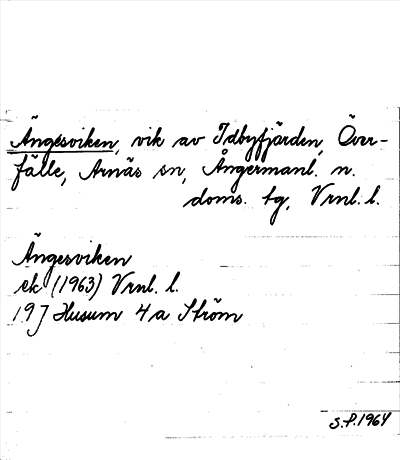 Ängesviken, vik av Idbyfjärden, Över-
fälle, Arnäs sn, Ångermanl. n.
doms. tg, Vrnl. l.
Ängesviken
ek (1963) Vrnl. l.
19J Husum 4a Ström
S.P. 1964